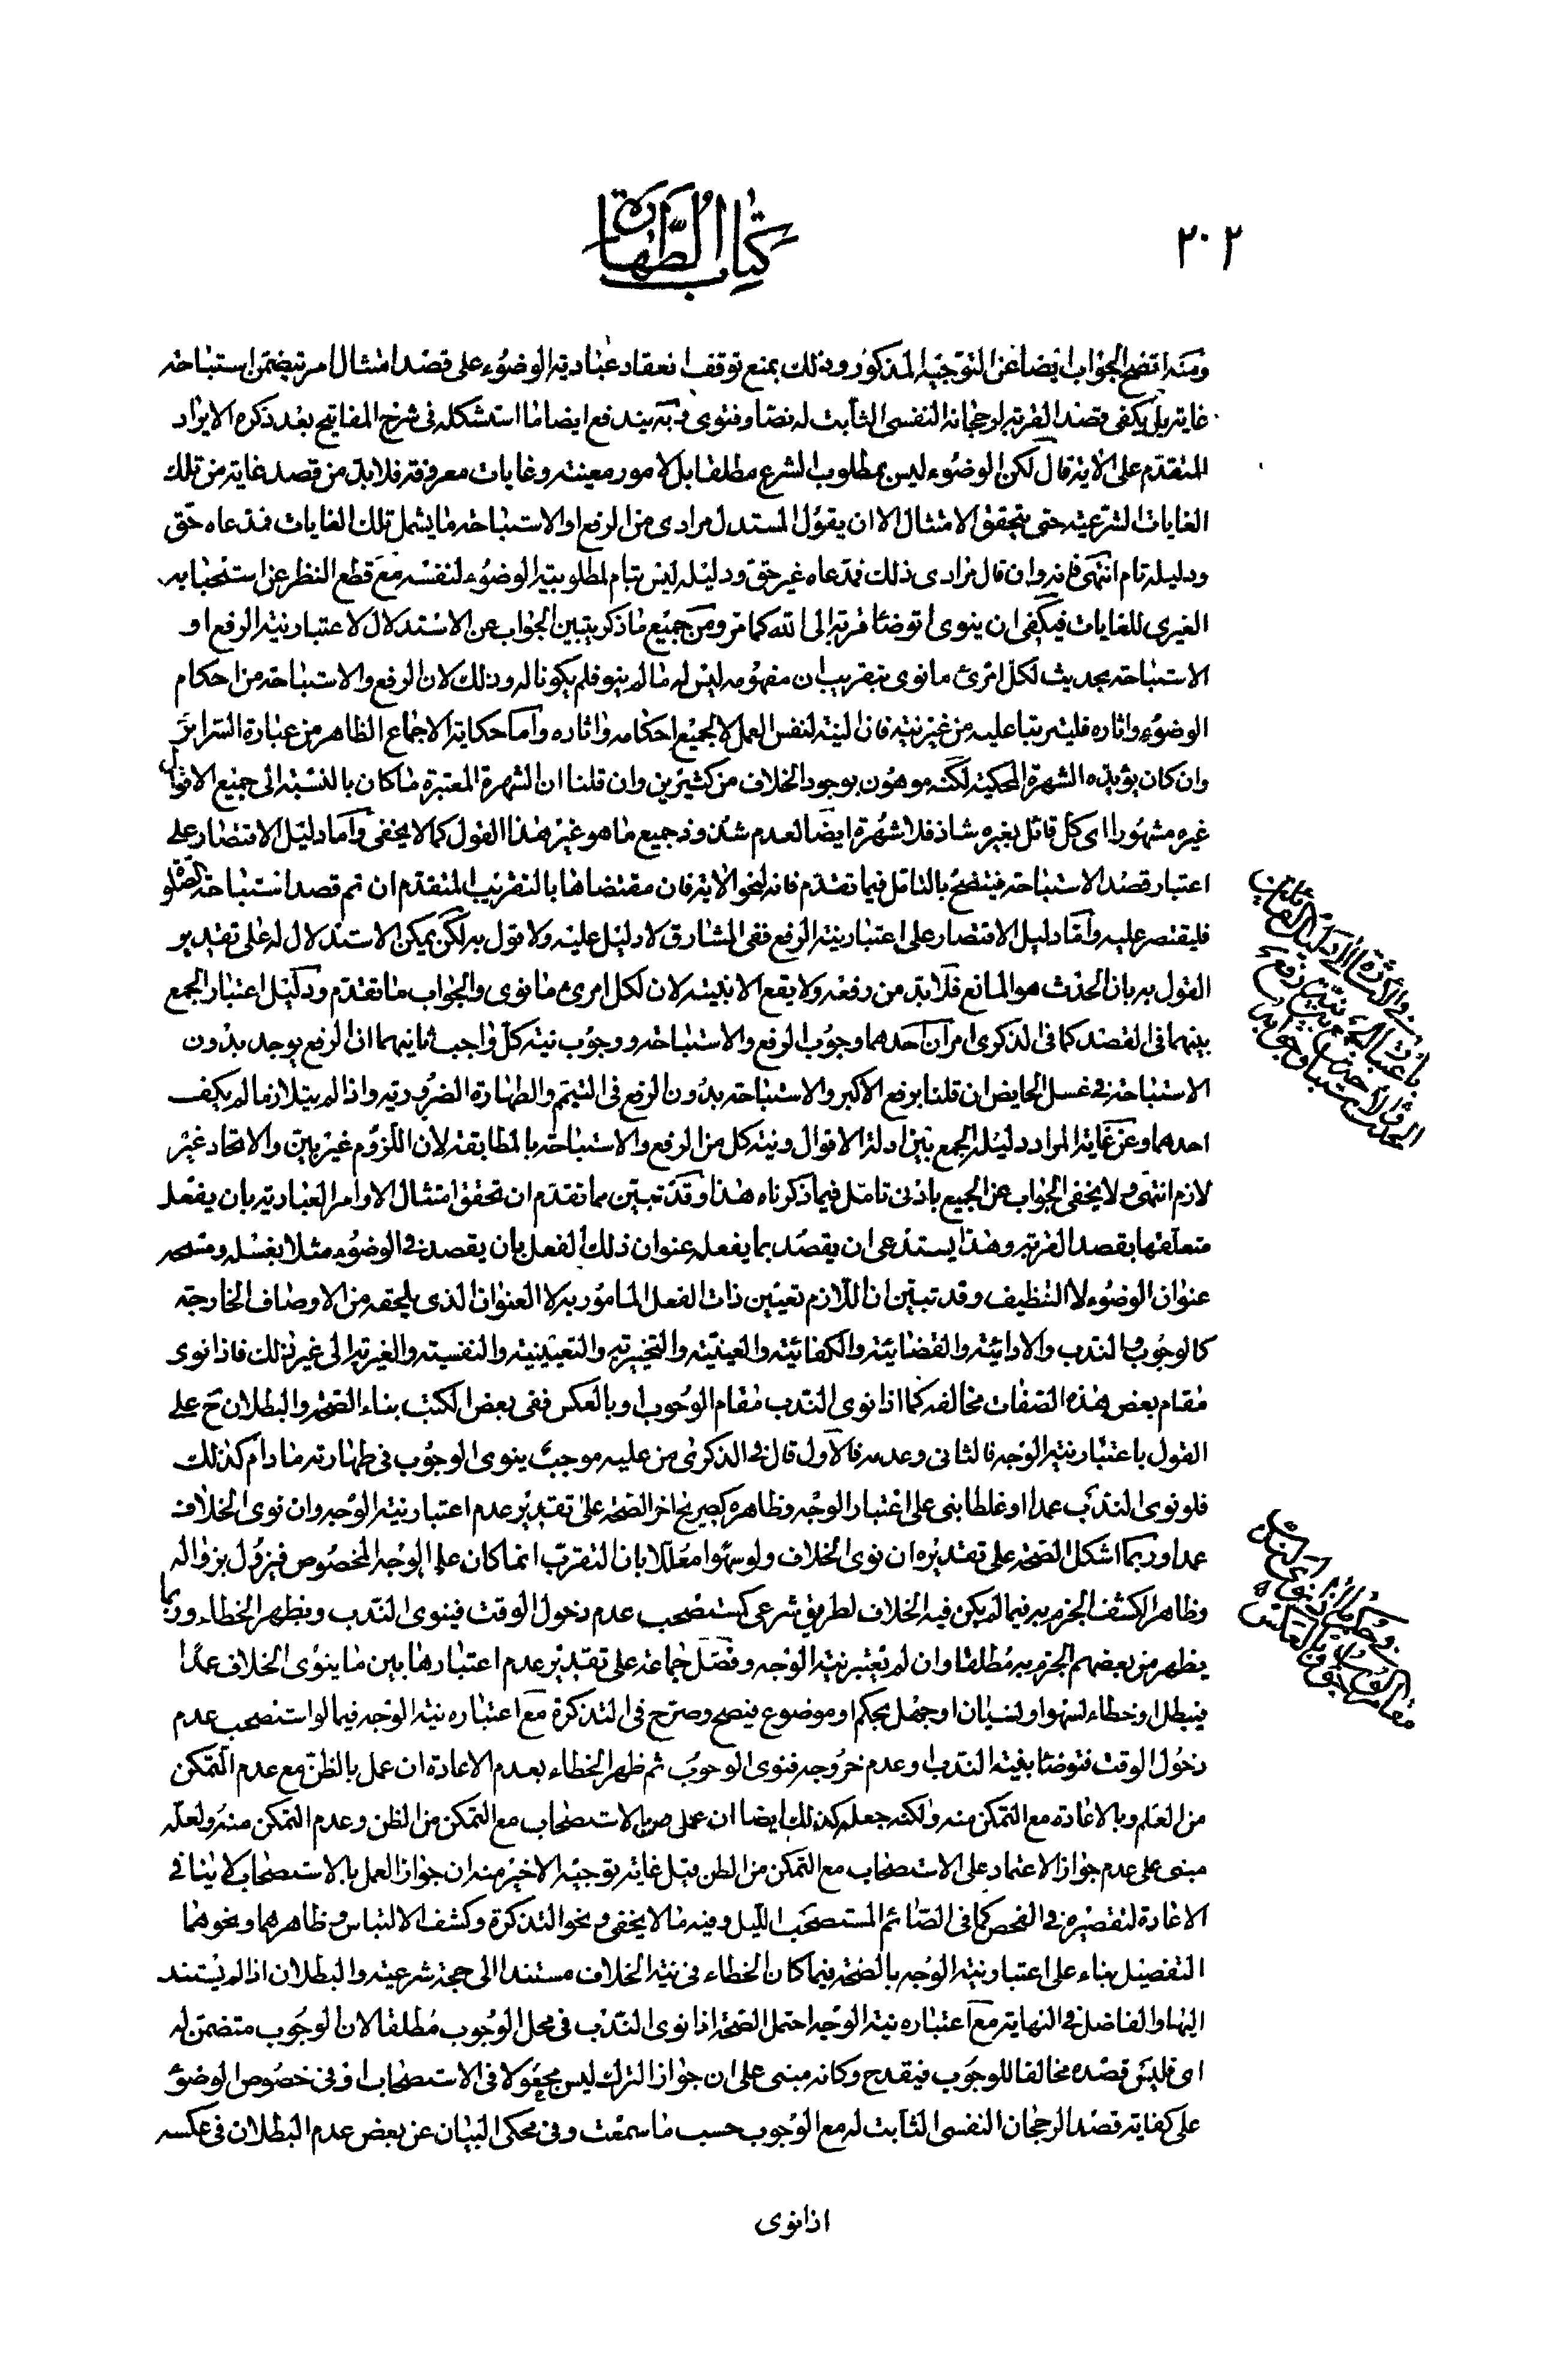 ٢٠٢
كتاب الطهارة
ومنه اتضح الجواب ايضا عن التوجيه المذكور وذلك بمنع توقف انعقاد عبادية الوضوء على قصد امتثال امر يتضمن استباحة
غايته بل يكفى قصد القربة لرجحانه النفسى الثابت له نصا وفتوى وبه يندفع ايضا ما استشكله فى شرح المفاتيح بعد ذكره الايراد
المتقدم على الاية قال لكن الوضوء ليس بمطلوب الشرع مطلقا بل لامور معينة وغايات معروفة فلا بد من قصد غاية من تلك
الغايات الشرعية حتى يتحقق الامتثال الا ان يقول المستدل مرادى من الرفع او الاستباحة ما يشمل تلك الغايات فمدعاه حق
ودليله تام انتهى فانه وان قال مرادى ذلك فمدعاه غير حق ودليله ليس بتام لمطلوبية الوضوء لنفسه مع قطع النظر عن استحبابه
الغيرى للغايات فيكفى ان ينوى اتوضا قربة الى الله كما مر ومن جميع ما ذكر يتبين الجواب عن الاستدلال لاعتبار نية الرفع او
الاستباحة بحديث لكل امرئ ما نوى بتقريب ان مفهومه ليس له ما لم ينو فلم يكونا له وذلك لان الرفع والاستباحة من احكام
الوضوء واثاره فليترتبا عليه من غير نية فان النية لنفس العمل لا لجميع احكامه واثاره واما حكاية الاجماع الظاهر من عبارة السرائر
وان كان يؤيده الشهرة المحكية لكنه موهون بوجود الخلاف من كثيرين وان قلنا ان الشهرة المعتبرة ما كان بالنسبة الى جميع الاقوال
غيره مشهورا اى كل قائل بغيره شاذ فلا شهرة ايضا لعدم شذوذ جميع ما هو غير هذا القول كما لا يخفى واما دليل الاقتصار على
اعتبار قصد الاستباحة فيتضح بالتامل فيما تقدم فانه لنحو الاية فان مقتضاها بالتقريب المتقدم ان تم قصد استباحة الصلوة
فليقتصر عليه واما دليل الاقتصار على اعتبار نية الرفع ففى المشارق لا دليل عليه ولا قول به لكن يمكن الاستدلال له على تقدير
القول به بان الحدث هو المانع فلا بد من رفعه ولا يقع الا بنيته لان لكل امرئ ما نوى والجواب ما تقدم ودليل اعتبار الجمع
بينهما فى القصد كما فى الذكرى امران احدهما وجوب الرفع والاستباحة ووجوب نية كل واجب ثانيهما ان الرفع يوجد بدون
الاستباحة فى غسل الحايض ان قلنا برفع الاكبر والاستباحة بدون الرفع فى التيمم والطهارة الضرورية واذا لم يتلازما لم يكف
احدهما وعن غاية المراد دليله الجمع بين ادلة الاقوال ونية كل من الرفع والاستباحة بالمطابقة لان اللزوم غير بين والاتحاد غير
لازم انتهى ولا يخفى الجواب عن الجميع بادنى تامل فيما ذكرناه هذا وقد تبين مما تقدم ان تحقق امتثال الاوامر العبادية بان يفعل
متعلقها بقصد القربة وهذا يستدعى ان يقصد بما يفعله عنوان ذلك الفعل بان يقصد فى الوضوء مثلا بغسله ومسحه
عنوان الوضوء لا التنظيف وقد تبين ان اللازم تعيين ذات الفعل المامور به لا العنوان الذى يلحقه من الاوصاف الخارجة
كالوجوب والندب والادائية والقضائية والكفائية والعينية والتخييرية والتعيينية والنفسية والغيرية الى غير ذلك فاذا نوى
مقام بعض هذه الصفات مخالفه كما اذا نوى الندب مقام الوجوب او بالعكس ففى بعض الكتب بناء الصحة والبطلان ح على
القول باعتبار نية الوجه فالثانى وعدمه فالاول قال فى الذكرى من عليه موجب ينوى الوجوب فى طهارته ما دام كذلك
فلو نوى الندب عمدا او غلطا بنى على اعتبار الوجه وظاهره كصريح اخر الصحة على تقدير عدم اعتبار نية الوجه وان نوى الخلاف
عمدا وربما اشكل الصحة على تقديره ان نوى الخلاف ولو سهوا معللا بان التقرب انما كان على الوجه المخصوص فيزول بزواله
وظاهر الكشف الجزم به فيما لم يكن فيه الخلاف لطريق شرعى كمستصحب عدم دخول الوقت فينوى الندب ويظهر الخطاء وربما
يظهر من بعضهم الجزم به مطلقا وان لم يعتبر نية الوجه وفصل جماعة على تقدير عدم اعتبارها بين ما ينوى الخلاف عمدا
فيبطل او خطاء لسهو او لنسيان او جهل بحكم او موضوع فيصح وصرح فى التذكرة مع اعتباره نية الوجه فيما لو استصحب عدم
دخول الوقت فتوضا بنية الندب او عدم خروجه فنوى الوجوب ثم ظهر الخطاء بعدم الاعادة ان عمل بالظن مع عدم التمكن
من العلم وبالاعادة مع التمكن منه ولكنه جعله كذلك ايضا ان عمل بالاستصحاب مع التمكن من الظن وعدم التمكن منه ولعله
مبنى على عدم جواز الاعتماد على الاستصحاب مع التمكن من الظن قيل غاية توجيه الاخير منه ان جواز العمل بالاستصحاب لا ينافى
الاعادة لتقصيره فى الفحص كما فى الصائم المستصحب الليل وفيه ما لا يخفى ونحو التذكرة وكشف الالتباس وظاهرهما ونحوهما
التفصيل بناء على اعتبار نية الوجه بالصحة فيما كان الخطاء فى نية الخلاف مستندا الى حجة شرعية والبطلان اذا لم يستند
اليها والفاضل فى النهاية مع اعتباره نية الوجه احتمل الصحة اذا نوى الندب فى محل الوجوب مطلقا لان الوجوب متضمن له
اى فليس قصده مخالفا للوجوب فيقدح وكانه مبنى على ان جواز الترك ليس مجعولا فى الاستصحاب او فى خصوص الوضوء
على كفاية قصد الرجحان النفسى الثابت له مع الوجوب حسب ما سمعت وفى محكى البيان عن بعض عدم البطلان فى عكسه
اذا نوى